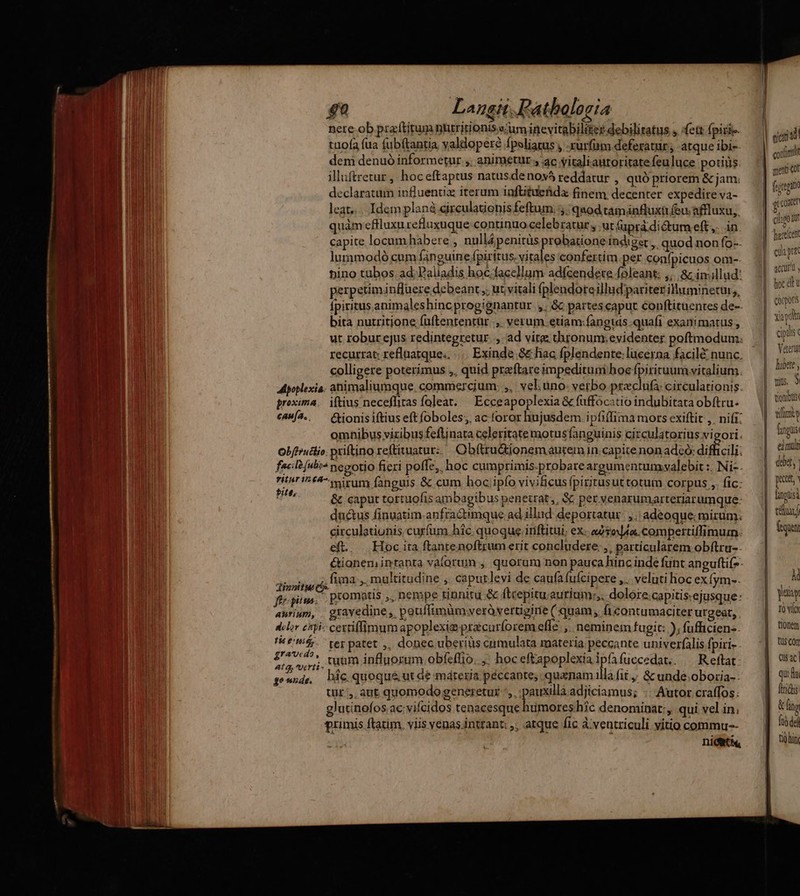 90 Langii Pathologia
nere ob præstitum nutritionis ejum inevitabiliter debilitatus, seu spiri-
tuosa sua substantia valdoperè spoliatus, rursum deferatur, atque ibi-
dem denuò informetur, animetur, ac vitali autoritate seu luce potiùs
illustretur, hoc est aptus natus de novâ reddatur, quò priorem & jam
declaratum influentiæ iterum instituenda finem, decenter expedire va-
leat. Idem planè circulationis festum, quod tam influxu seu affluxu,
quàm effluxu refluxuque continuo celebratur, ut suprà dictum est, in
capite locum habere, nullâ penitùs probatione indiget, quod non so-
lummodò cum sanguine spiritus vitales confertim per conspicuos om-
nino tubos ad Palladis hoc sacellum adscendere soleant, & in illud
perpetim influere debeant, ut vitali splendore illud pariter illuminetur,
spiritus animales hinc progignantur, & partes caput constituentes de-
bita nutritione sustententur, verum etiam sanguis quasi exanimatus,
ut robur ejus redintegretur, ad vitæ thronum evidenter postmodum
recurrat refluatque. Exinde & hac splendente lucerna facilè nunc
colligere poterimus, quid præstare impeditum hoc spirituum vitalium
Apoplexia animaliumque commercium, vel uno verbo præclusa circulationis
proxima istius necessitas soleat. Ecce apoplexia & suffocatio indubitata obstru-
causa. ctionis istius est soboles, ac soror hujusdem ipsissima mors existit, nisi
omnibus viribus festinata celeritate motus sanguinis circulatorius vigori
Obstructio pristino restituatur. Obstructionem autem in capite non adeò difficili
facilè subo- negotio fieri posse, hoc cumprimis probare argumentum valebit: Ni-
ritur in ca- mirum sanguis & cum hoc ipso vivificus spiritus ut totum corpus, sic
pite, & caput tortuosis ambagibus penetrat, & per venarum arteriarumque
ductus sinuatim anfractimque ad illud deportatur, adeoque mirum
circulationis cursum hîc quoque institui, ex compertissimum
est. Hoc ita stante nostrum erit concludere, particularem obstru-
ctionem in tanta vasorum, quorum non pauca hinc inde sunt angustis-
sima, multitudine, caput levi de causa suscipere, veluti hoc ex sym-
promatis, nempe tinnitu & strepitu aurium, dolore capitis ejusque
aurium, gravedine, potissimùm verò vertigine (quam, si contumaciter urgeat,
dolor capi- certissimum apoplexiæ præcursorem esse, neminem fugit), sufficien-
ter patet, donec uberiùs cumulata materia peccante universalis spiri-
gravedo, tuum influorum obsessio, hoc est apoplexia ipsa succedat. Restat
unde. hîc quoque ut de materia peccante, quænam illa sit, & unde oboria-
tur, aut quomodo generetur, pauxilla adjiciamus; Autor crassos
glutinosos ac viscidos tenacesque humores hîc denominat, qui vel in
primis statim viis venas intrant, atque sic à ventriculi vitio commu-
nicatis